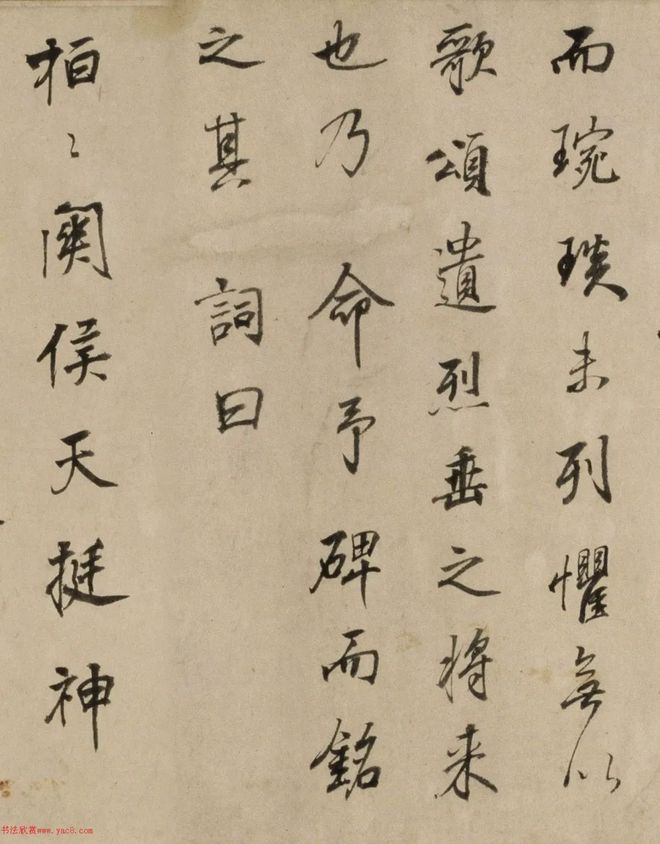 而琬琰未列懼無以
歌頌遺烈垂之将来
也乃命予碑而銘
之其詞曰
栢〻関侯天挺神
书法欣赏www.yac8.com